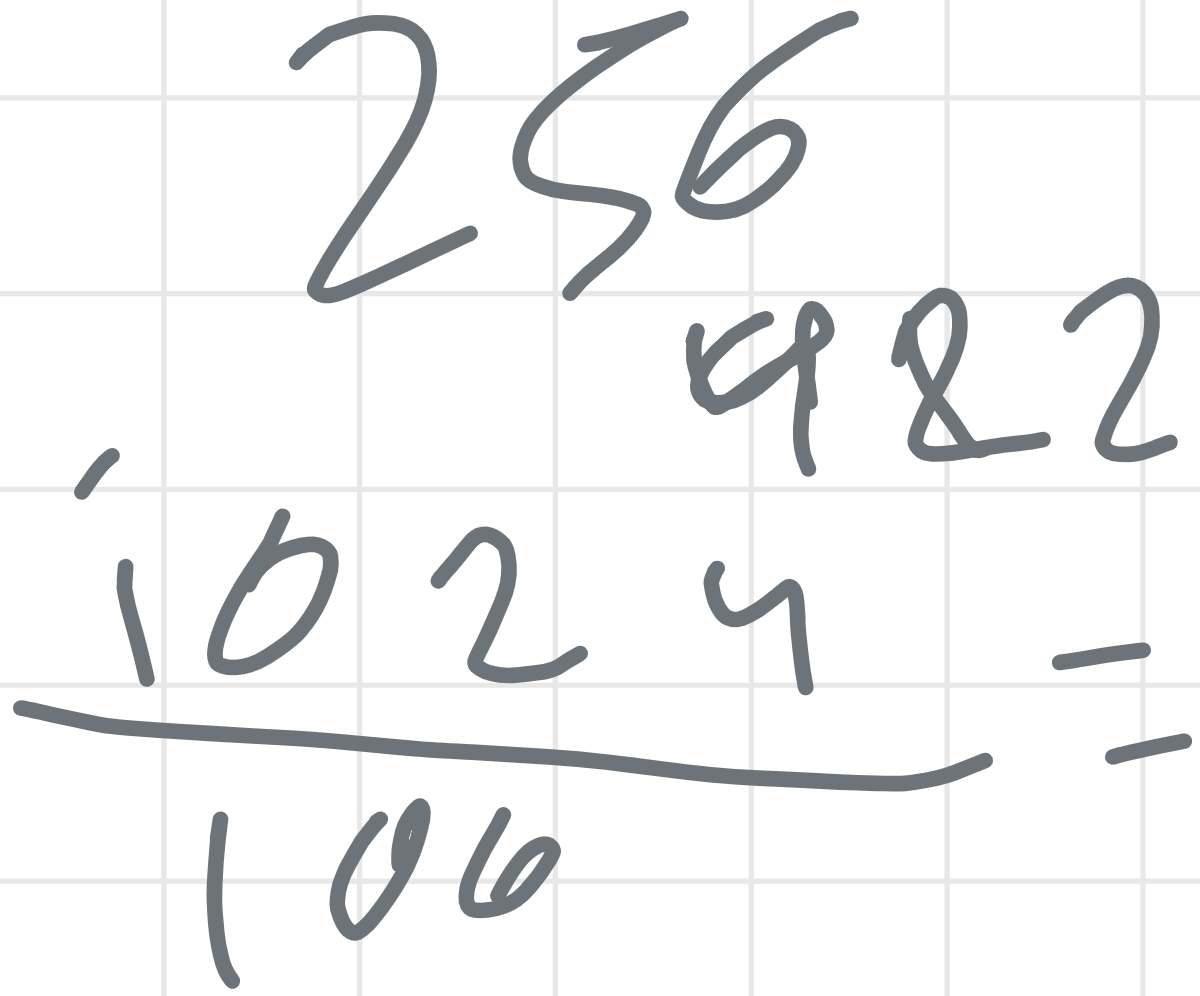 256
482
1024 =
106